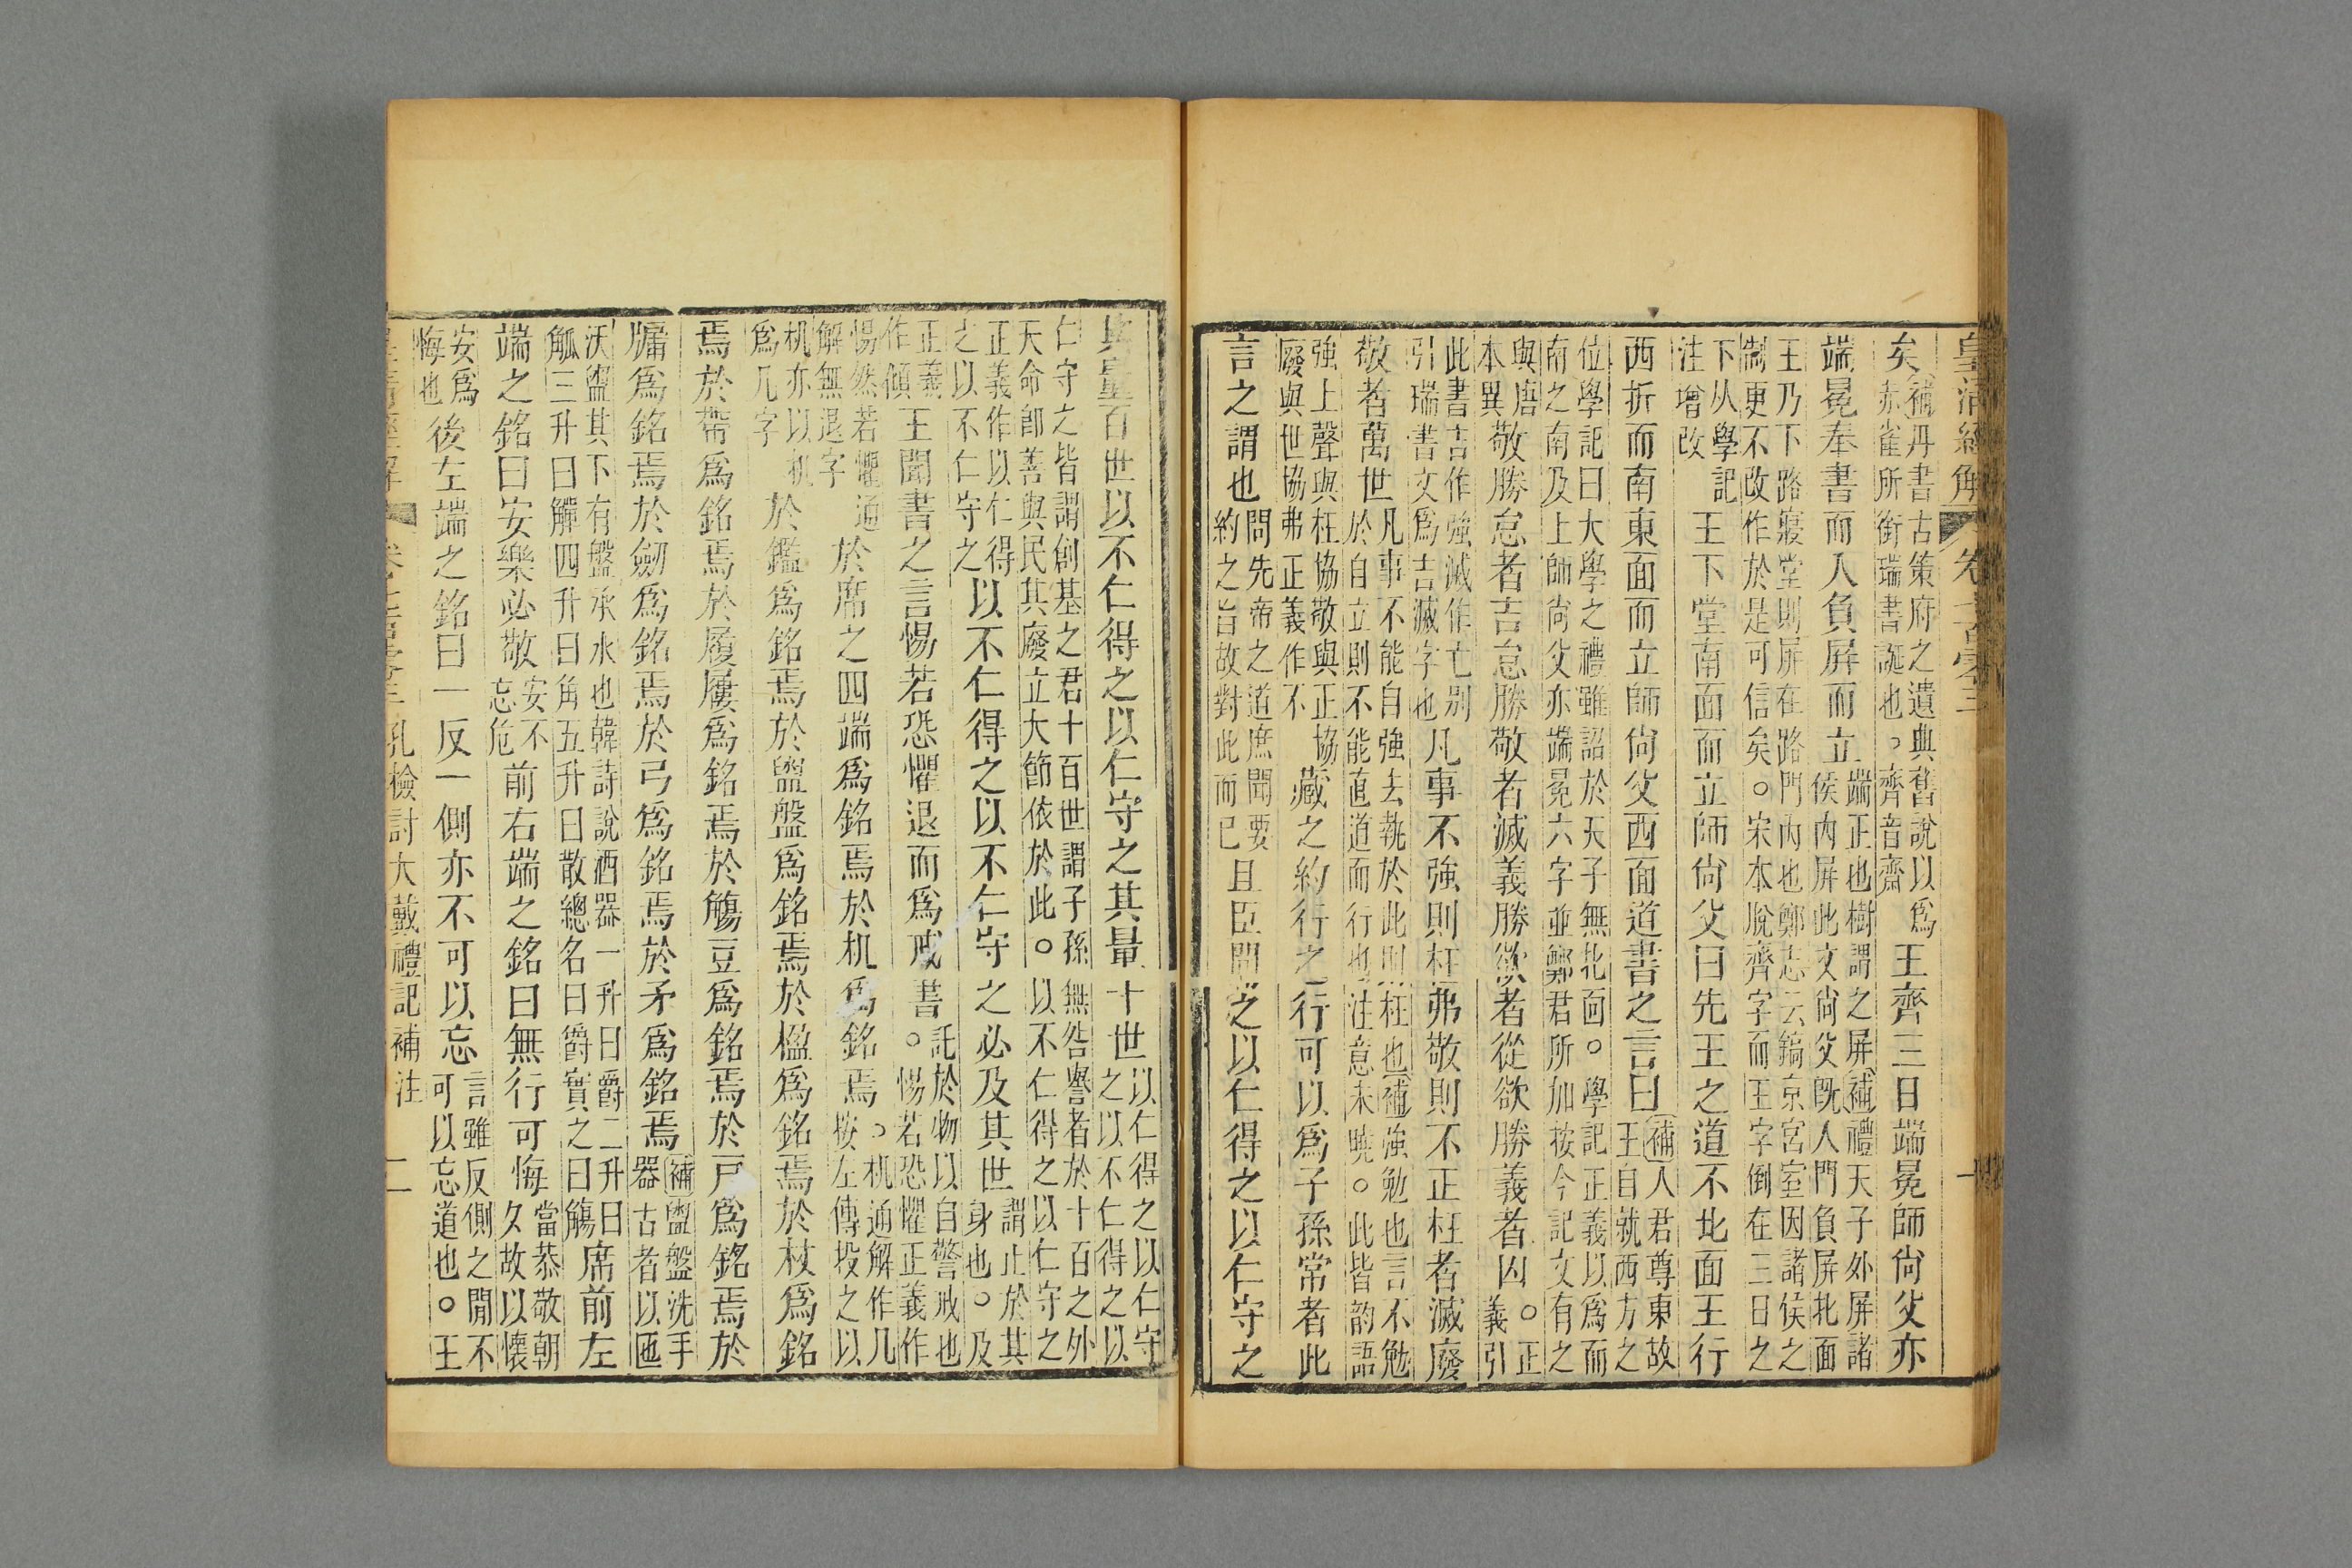 皇清經解 卷七百零三 一
矣補丹書古策府之遺典舊說以爲赤雀所銜瑞書誕也。齊音齋王齊三日端冕師尚父亦
端冕奉書而入負屏而立端正也樹謂之屏補禮天子外屏諸侯內屏此文尚父既入門負屏北面
王乃下路寢堂則屏在路門內也鄭志云鎬京宮室因諸侯之制更不改作於是可信矣。宋本脫齊字而王字倒在三日之
下从學記注增改王下堂南面而立師尚父曰先王之道不北面王行
西折而南東面而立師尚父西面道書之言曰補人君尊東故王自就西方之
位學記曰大學之禮雖詔於天子無北面。學記正義以爲而南之南及上師尚父亦端冕六字並鄭君所加按今記文有之
與唐本異敬勝怠者吉怠勝敬者滅義勝欲者從欲勝義者凶。正義引
此書吉作強滅作亡别引瑞書文爲吉滅字也凡事不強則枉弗敬則不正枉者滅廢
敬者萬世凡事不能自強去執於此則枉也補強勉也言不勉於自立則不能直道而行也注意未曉。此皆韵語
強上聲與枉協敬與正協廢與世協弗正義作不藏之約行之行可以爲子孫常者此
言之謂也問先帝之道庶聞要約之旨故對此而已且臣聞之以仁得之以仁守之
其量百世以不仁得之以仁守之其量十世以仁得之以仁守之以不仁得之以
仁守之皆謂創基之君十百世謂子孫無咎譽者於十百之外天命卽善與民其廢立大節依於此。以不仁得之以仁守之
正義作以仁得之以不仁守之以不仁得之以不仁守之必及其世謂止於其身也。及
正義作傾王聞書之言惕若恐懼退而爲戒書託於物以自警戒也。惕若恐懼正義作
惕然若懼通解無退字於席之四端爲銘焉於机爲銘焉。机通解作几按左傳投之以
机亦以机爲几字於鑑爲銘焉於盥盤爲銘焉於楹爲銘焉於杖爲銘
焉於帶爲銘焉於履屨爲銘焉於觴豆爲銘焉於戶爲銘焉於
牖爲銘焉於劒爲銘焉於弓爲銘焉於矛爲銘焉補盥盤洗手器古者以匜
沃盥其下有盤承水也韓詩說酒器一升曰爵二升曰觚三升曰觶四升曰角五升曰散總名曰爵實之曰觴席前左
端之銘曰安樂必敬安不忘危前右端之銘曰無行可悔當恭敬朝夕故以懷
安爲悔也後左端之銘曰一反一側亦不可以忘言雖反側之閒不可以忘道也。王
孔檢討大戴禮記補注 二